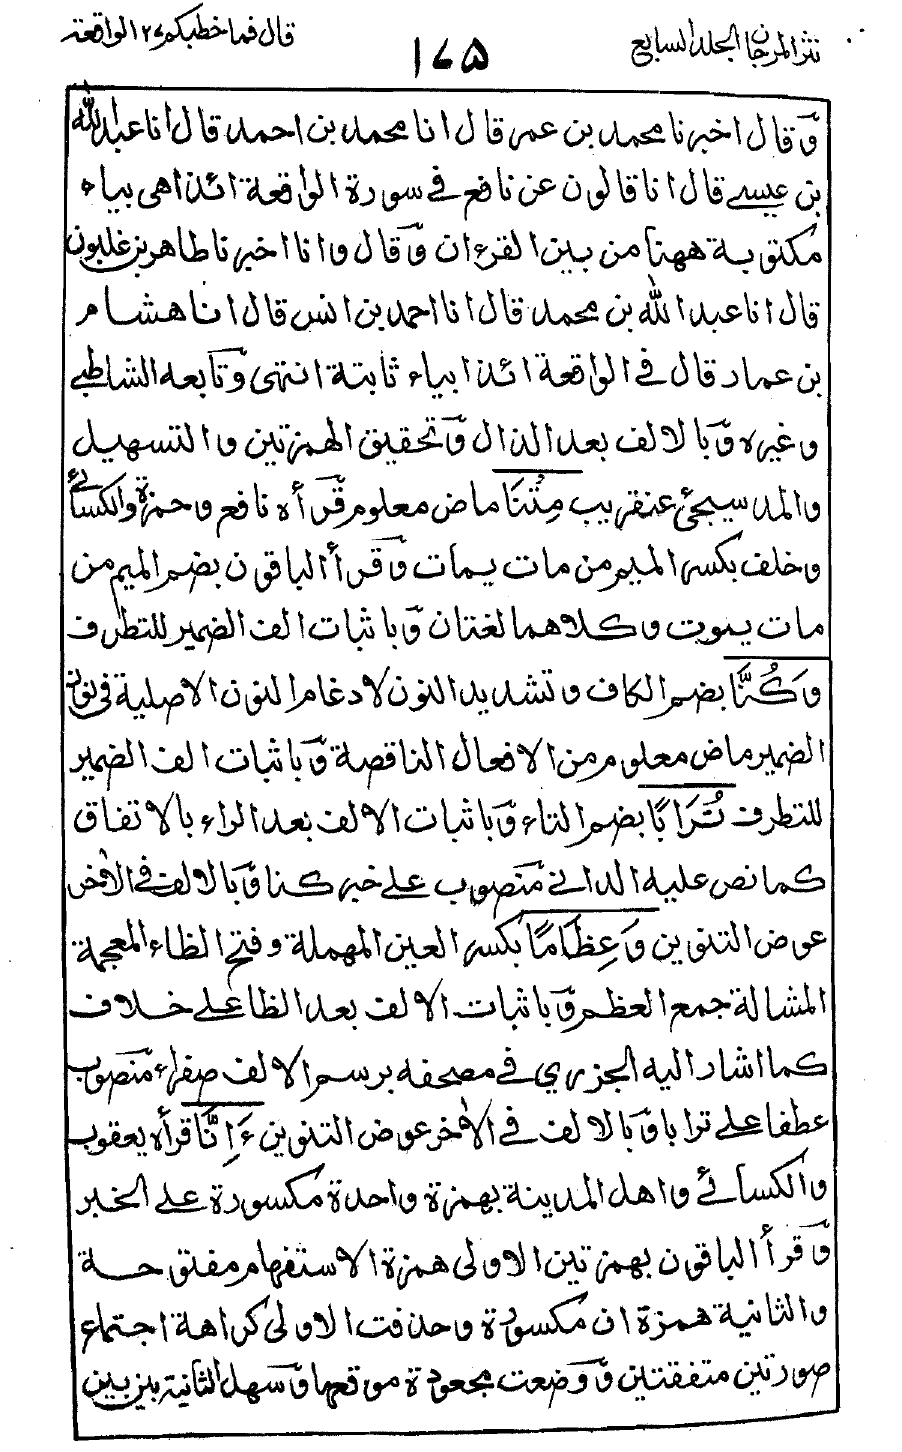 نثر المرجان الجلد السابع
١٦٥
قال فما خطبكم ٢٧ الواقعة
وقال اخبرنا محمد بن عمر قال انا محمد بن احمد قال انا عبد الله
بن عيسى قال انا قالون عن نافع في سورة الواقعة ائذا هي بياء
مكتوبة ههنا من بين القرءان وقال وانا اخبرنا طاهر بن غلبون
قال انا عبد الله بن محمد قال انا احمد بن انس قال انا هشام
بن عمار قال في الواقعة ائذا بياء ثابتة انتهى وتابعه الشاطبي
وغيره وبالالف بعد الذال وتحقيق الهمزتين والتسهيل
والمد سيجئ عنقريب مِتْنَا ماض معلوم قرأه نافع وحمزة والكسائي
وخلف بكسر الميم من مات يمات وقرأ الباقون بضم الميم من
مات يموت وكلاهما لغتان وباثبات الف الضمير للتطرف
وَكُنَّا بضم الكاف وتشديد النون لادغام النون الاصلية في نون
الضمير ماض معلوم من الافعال الناقصة وباثبات الف الضمير
للتطرف تُرَابًا بضم التاء وباثبات الالف بعد الراء بالاتفاق
كما نص عليه الداني منصوب على خبر كنا وبالالف في الاخر
عوض التنوين وَعِظَامًا بكسر العين المهملة وفتح الظاء المعجمة
المشالة جمع العظم وباثبات الالف بعد الظا على خلاف
كما اشار اليه الجزري في مصحفه برسم الالف صفراء منصوب
عطفا على ترابا وبالالف في الاخر عوض التنوين ءَاِنَّا قرأه يعقوب
والكسائي واهل المدينة بهمزة واحدة مكسورة على الخبر
وقرأ الباقون بهمزتين الاولى همزة الاستفهام مفتوحة
والثانية همزة ان مكسورة وحذفت الاولى كراهة اجتماع
صورتين متفقتين ووضعت مجعودة موقعها وسهل الثانية بين بين